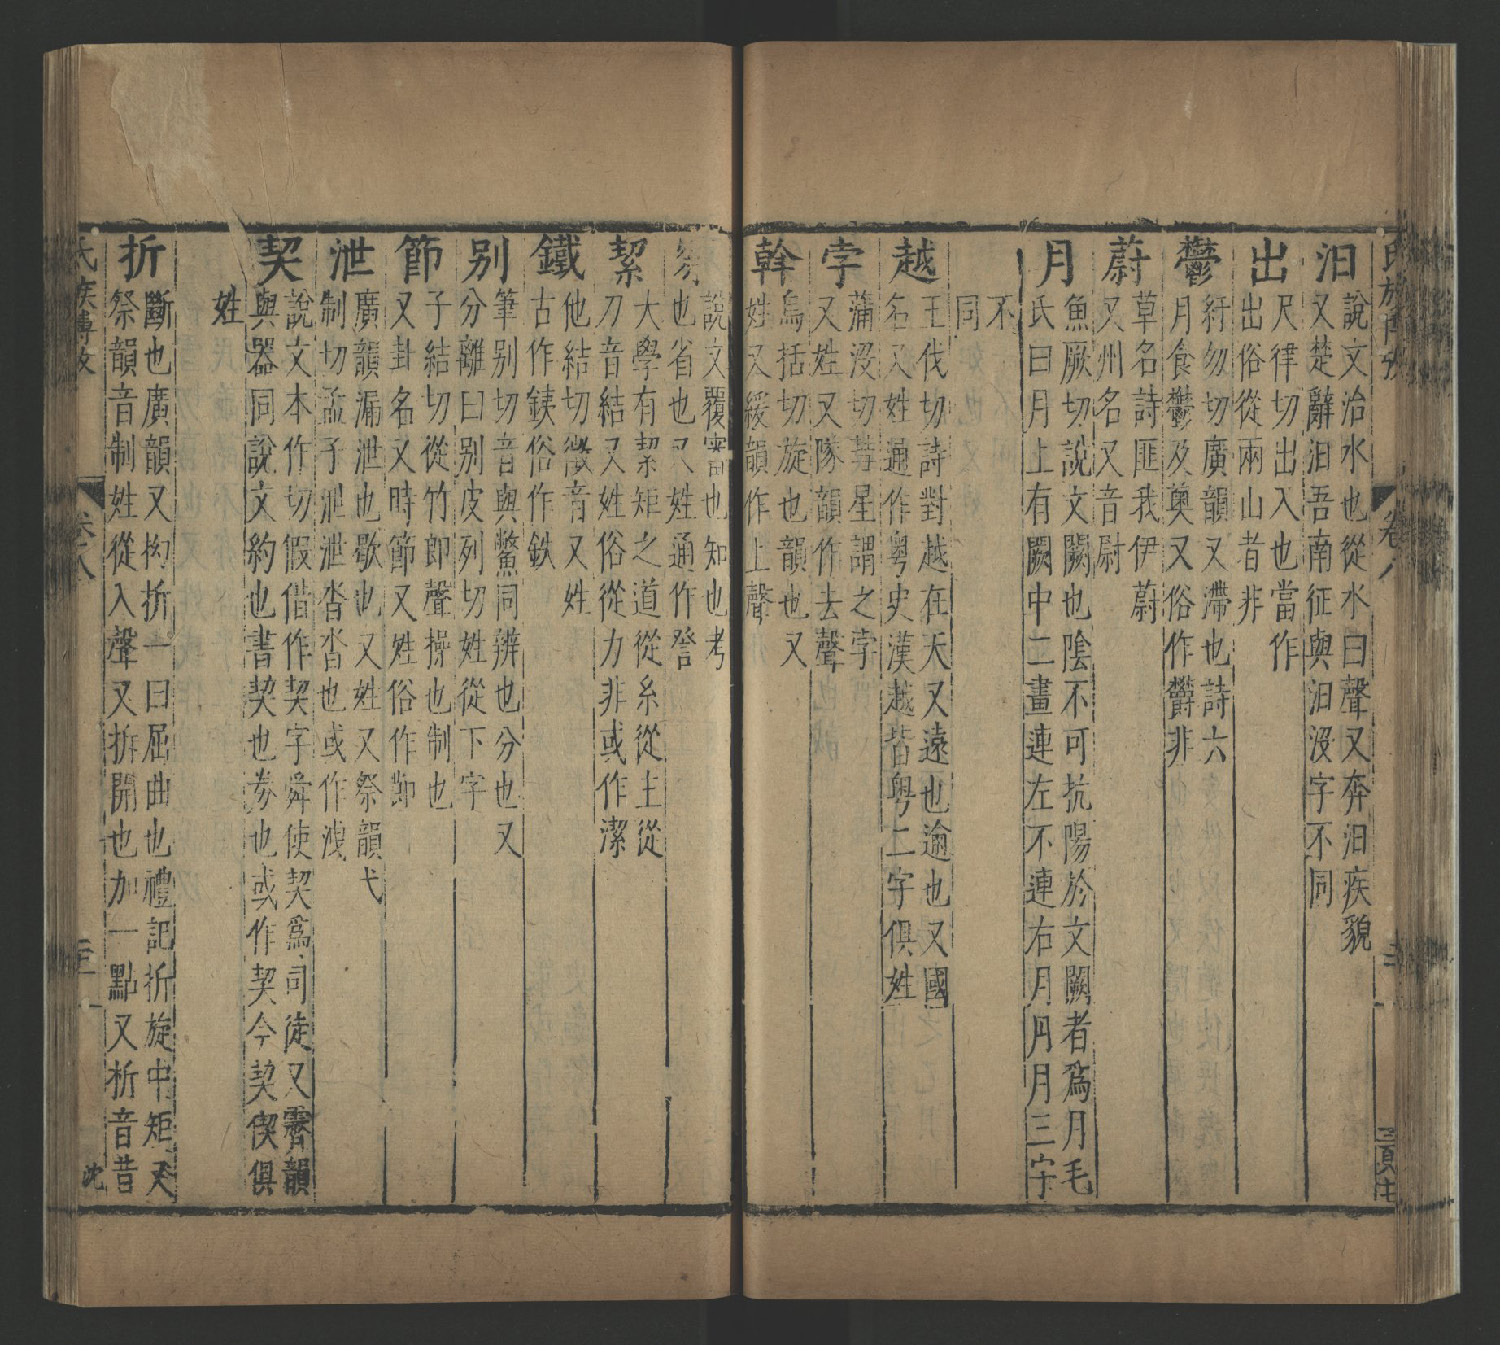 汨
說文治水也從水曰聲又奔汨疾貌
又楚辭汨吾南征與汨沒字不同
出
尺律切出入也當作
出俗從兩山者非
鬱
紆勿切廣韻又滯也詩六
月食鬱及薁又俗作欝非
蔚
草名詩匪我伊蔚
又州名又音尉
月
魚厥切說文闕也陰不可抗陽於文闕者為月毛
氏曰月上有闕中二畫連左不連右月月月三字
不
同
越
王伐切詩對越在天又遠也逾也又國
名又姓通作粵史漢越皆粵二字俱姓
孛
蒲沒切彗星謂之孛
又姓又隊韻作去聲
斡
烏括切旋也韻也又
姓又緩韻作上聲
察
說文覆審也知也考
也省也又姓通作詧
絜
大學有絜矩之道從糸從丰從
刀音結又姓俗從力非或作潔
鐵
他結切徵音又姓
古作銕俗作鉄
別
筆別切音與鱉同辨也分也又
分離曰別皮列切姓從下字
節
子結切從竹即聲操也制也
又卦名又時節又姓俗作節
泄
廣韻漏泄也歇也又姓又祭韻弋
制切孟子泄泄沓沓也或作洩
契
說文本作切假借作契字舜使契爲司徒又霽韻
與器同說文約也書契也券也或作契今契偰俱
姓
折
斷也廣韻又拗折一曰屈曲也禮記折旋中矩又
祭韻音制姓從入聲又拆開也加一點又析音昔
氏族博攷
卷八
沈